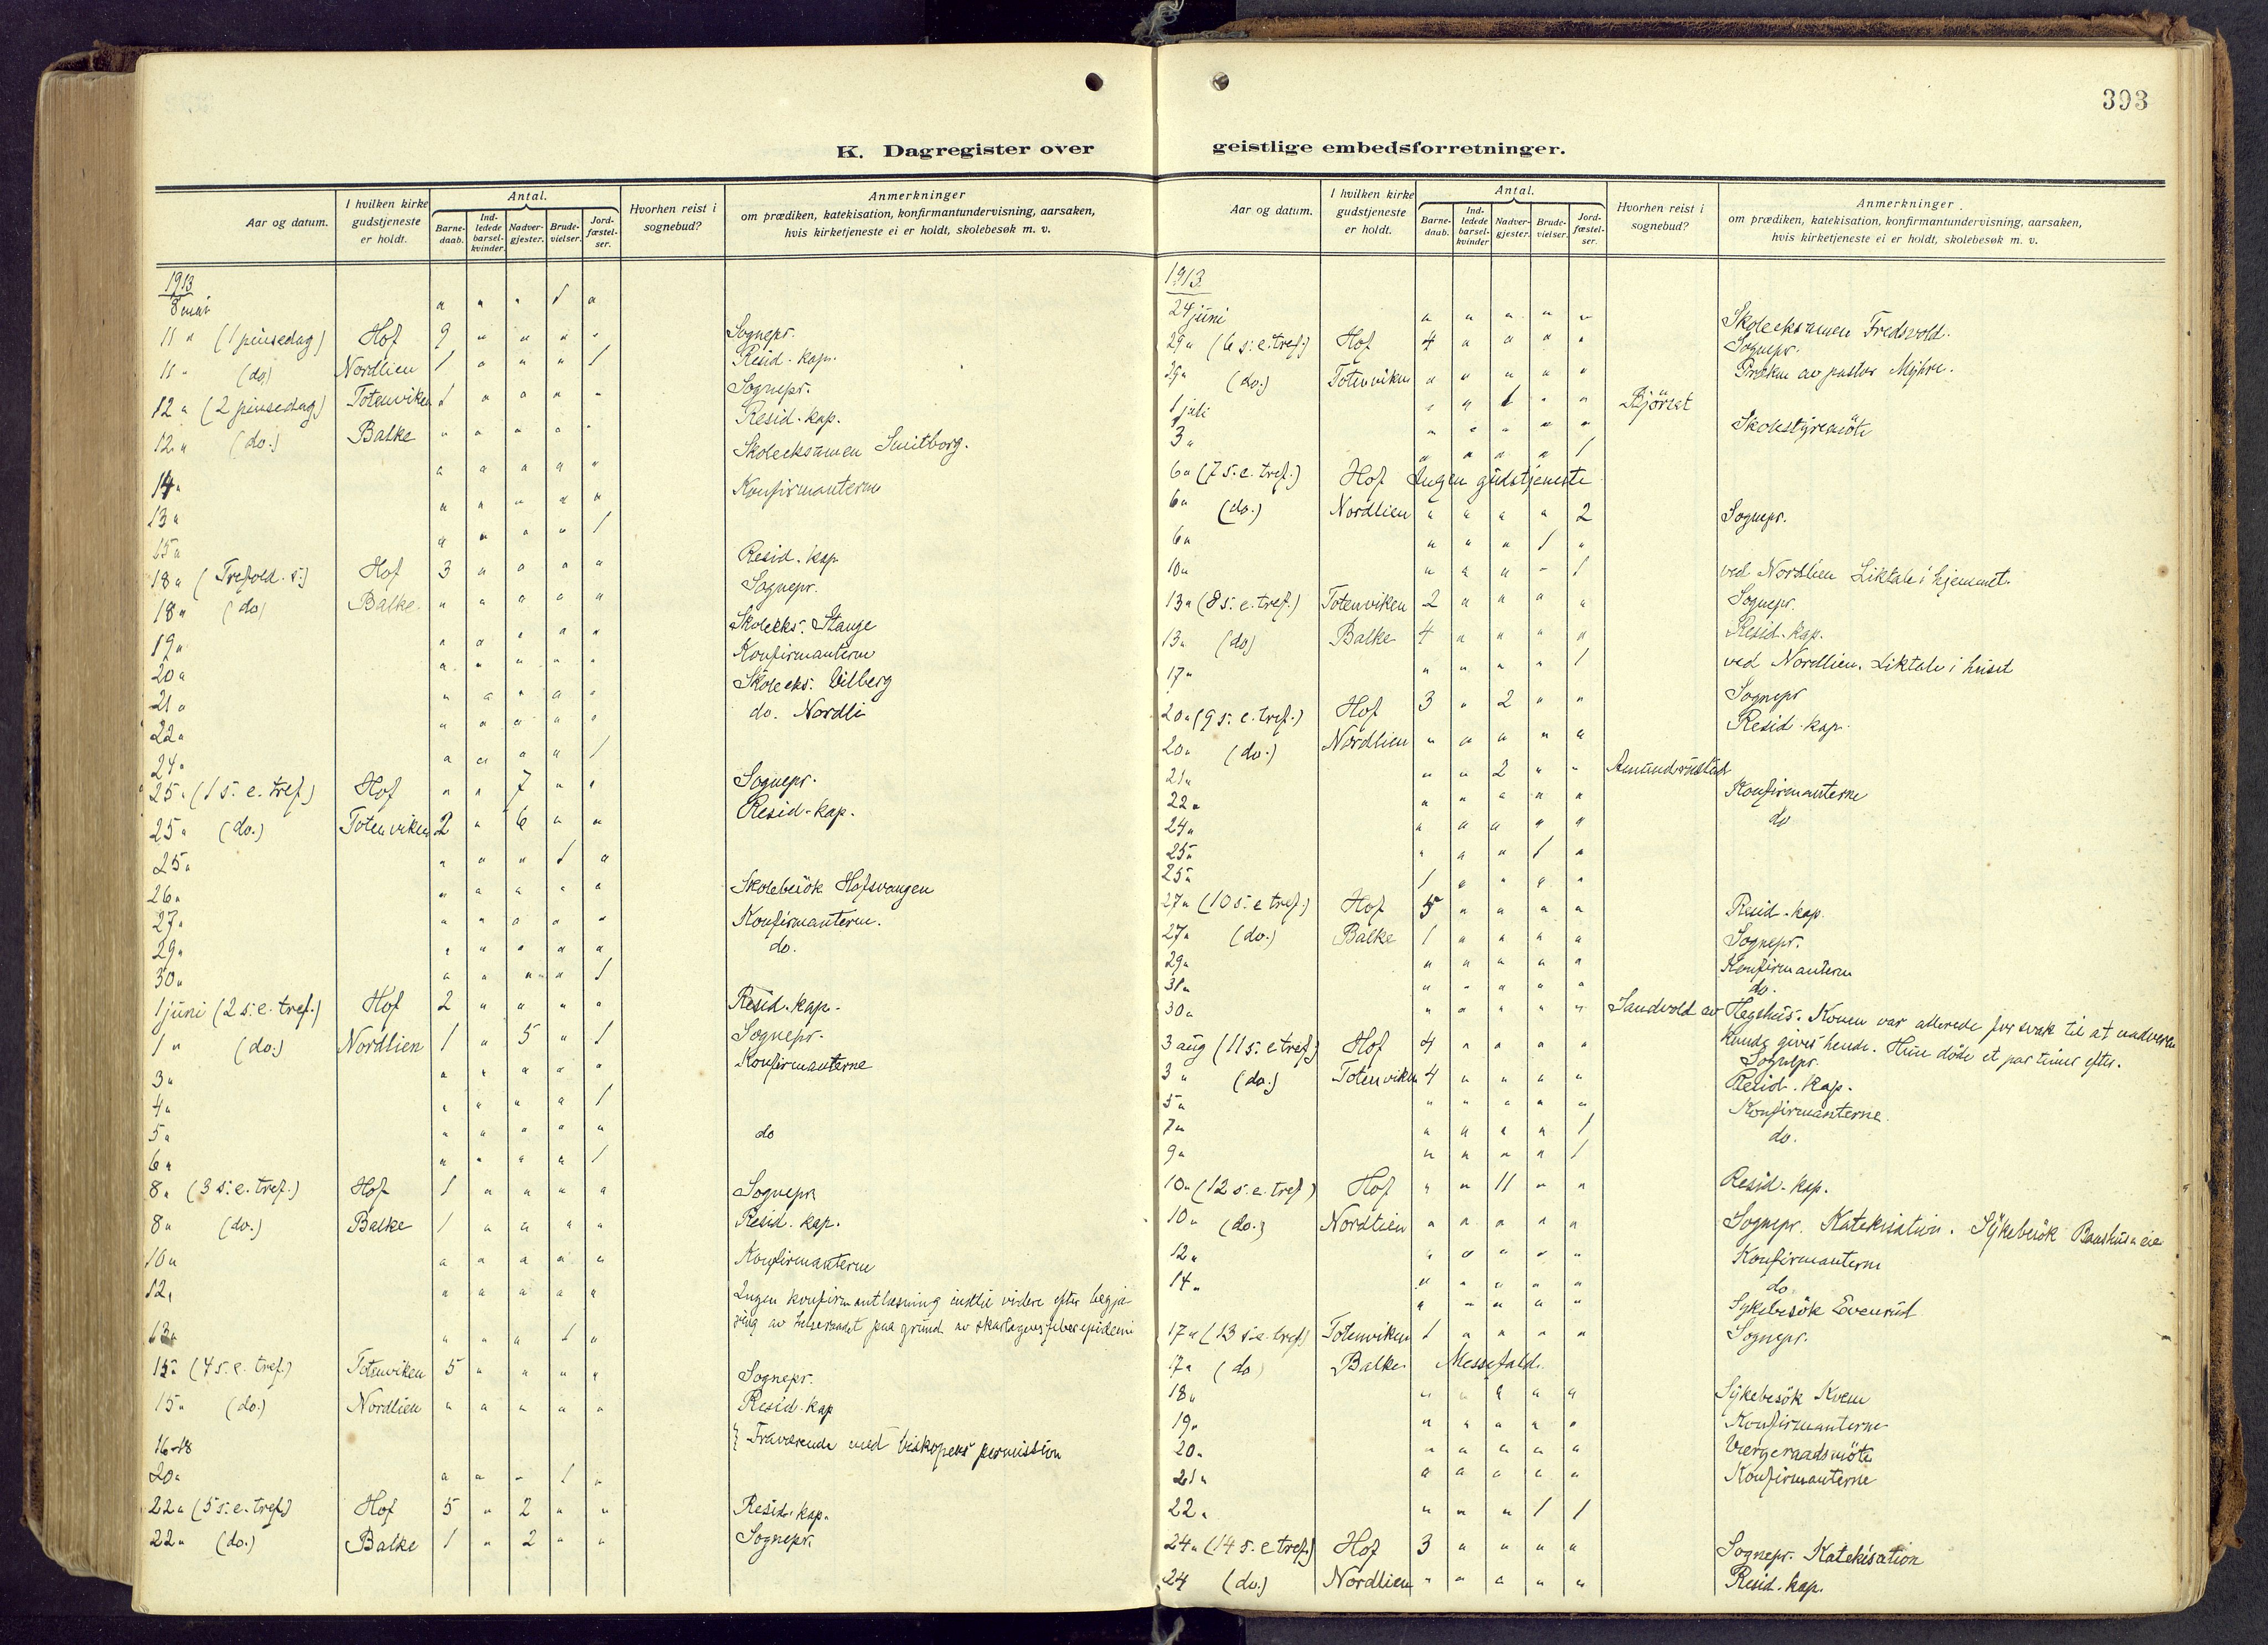 K. Dagregister over
Aar og datum. I hvilken kirke gudstjeneste er holdt. Antal. Barne-daab. Ind-ledede barsel-kvinder Nadver-gjester. Brude-vielser. Jord-fæstel-ser. Hvorhen reist i sognebud? Anmerkninger om prædiken, katekisation, konfirmantundervisning, aarsaken, hvis kirketjeneste ei er holdt, skolebesøk m. v.
1913
8 mai " " " 1 "
11 " (1 pinsedag) Hof 9 " " " " Sognepr.
11 " (do) Nordlien 1 " " " 1 Resid. kap.
12 " (2 pinsedag) Totenviken 1 " " " " Sognepr.
12 " (do.) Balke " " " " " Resid. kap.
14 " " " " " " Skoleeksamen Smitborg.
13 " " " " " " Konfirmanterne
15 " " " " " 1
18 " (Trefold. s.) Hof 3 " " " " Resid. kap.
18 " (do) Balke " " " " " Sognepr.
19 " " " " " " Skoleeks. Stange
20 " " " " " " Konfirmanterne
21 " " " " " " Skoleeks. Vilberg
22 " " " " " " do. Nordli
24 " " " " " 1
25 " (1 s. e. tref.) Hof " " 7 " " Sognepr.
25 " (do.) Totenviken 2 " 6 " " Resid. kap.
25 " " " " 1 "
26 " " " " " " Skolebesök Hofsvangen
27 " " " " " " Konfirmanterne.
29 " " " " " " do.
30 " " " " " 1
1 juni (2 s. e. tref.) Hof 2 " " " " Resid. kap.
1 " (do.) Nordlien 1 " 5 " 1 Sognepr.
3 " " " " " " Konfirmanterne
4 " " " " " 1
5 " " " " " " do
6 " " " " " 1
8 " (3 s. e. tref.) Hof 1 " " " " Sognepr.
8 " (do.) Balke 1 " " " " Resid. kap.
10 " " " " " " Konfirmanterne
12 " " " " " " Ingen konfirmantlæsning indtil videre efter begjæ-
ring av helseraadet paa grund av skarlagensfeberepidemi
13 " " " " 1 "
15 " (4 s. e. tref.) Totenviken 5 " " " " Sognepr.
15 " (do.) Nordlien " " " " " Resid. kap
16-18 } Fraværende med biskopens permission
20 " " " " 1 "
22 " (5 s. e. tref.) Hof 5 " 2 " " Resid. kap.
22 " (do.) Balke 1 " 2 " " Sognepr.
393
geistlige embedsforretninger.
Aar og datum. I hvilken kirke gudstjeneste er holdt. Antal. Barne-daab. Ind-ledede barsel-kvinder Nadver-gjester. Brude-vielser. Jord-fæstel-ser. Hvorhen reist i sognebud? Anmerkninger. om prædiken, katekisation, konfirmantundervisning, aarsaken, hvis kirketjeneste ei er holdt, skolebesøk m. v.
1913
24 juni " " " " " Skoleeksamen Fredsvold.
29 " (6 s. e. tref.) Hof 4 " " " " Sognepr.
29 " (do.) Totenviken " " " " " Præken av pastor Myhre.
1 juli " " 1 " " Bjørset
3 " " " " " " Skolestyremöte
" " " " 1
6 " (7 s. e. tref.) Hof Ingen gudstjeneste
6 " (do.) Nordlien " " " " 2 Sognepr.
6 " " " " 1 "
10 " " " " " 1 ved Nordlien Liktale i hjemmet.
13 " (8 s. e. tref.) Totenviken 2 " " " " Sognepr.
13 " (do) Balke 4 " " " " Resid. kap.
17 " " " " " 1 ved Nordlien. Liktale i huset
20 " (9 s. e. tref.) Hof 3 " 2 " " Sognepr
20 " (do.) Nordlien " " " " " Resid. kap.
21 " " " 2 " " Amundrustad
22 " " " " " " Konfirmanterne
24 " " " " " " do
25 " " " " 1 "
25 " 1 " " " "
27 " (10 s. e tref.) Hof 5 " " " " Resid. kap.
27 " (do.) Balke 1 " " " " Sognepr.
29 " " " " " " Konfirmanterne
31 " " " " " " do.
30 " " " " " " Sandvold av Hegshus. Konen var allerede for svak til at nadveren
kunde gives hende. Hun döde et par timer efter.
3 aug (11 s. e tref.) Hof 4 " " " " Sognepr.
3 " (do.) Totenviken 4 " " " " Resid. kap.
5 " " " " " " Konfirmanterne.
7 " " " " " 1 do.
9 " " " " " 1
10 " (12 s. e. tref) Hof " " 11 " " Resid. kap.
10 " (do.) Nordlien " " " " " Sognepr. Katekisation. Sykebesök
12 " " " " " " Konfirmanterne
14 " " " " " " do.
" " " " " Sykebesök Evenrud
17 " (13 s. e. tref) Totenviken 1 " " " " Sognepr.
17 " (do) Balke Messefald.
18 " " " " " " Sykebesök Kvem
19 " " " " " " Konfirmanterne
20 " " " " " " Værgeraadsmöte
21 " " " " " " Konfirmanterne
22 " " " " 1 1
24 " (14 s. e tref.) Hof 3 " " " " Sognepr. Katekisation
24 (do.) Nordlien " " " " " Resid. kap.